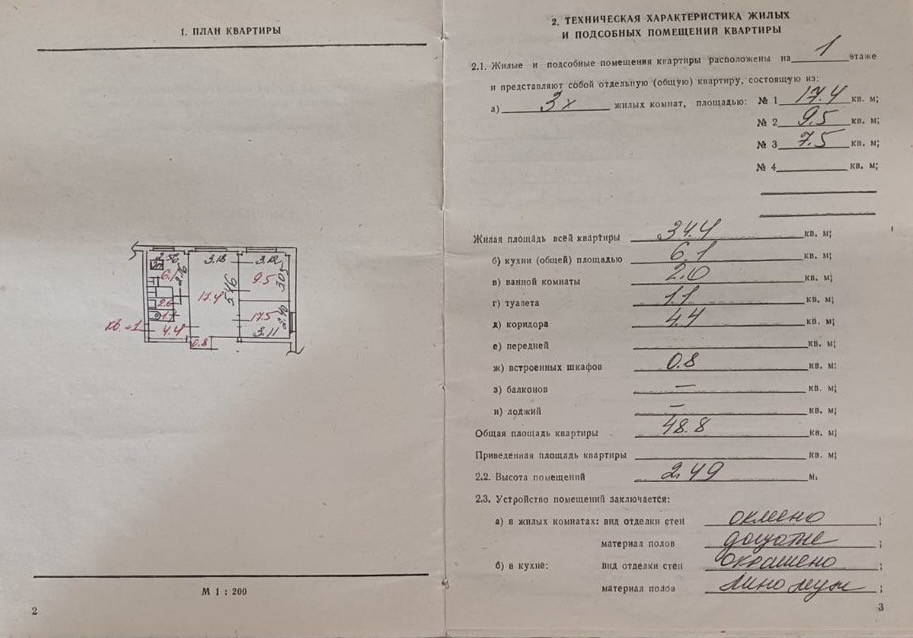 1. ПЛАН КВАРТИРЫ
2.56
3.18
3.12
6.1
2.76
17.4
5.46
9.5
3.05
2.0
1.1
кв. 1
4.4
17.5
2.40
0.8
3.11
М 1 : 200
2
2. ТЕХНИЧЕСКАЯ ХАРАКТЕРИСТИКА ЖИЛЫХ
И ПОДСОБНЫХ ПОМЕЩЕНИЙ КВАРТИРЫ
2.1. Жилые и подсобные помещения квартиры расположены на 1 этаже
и представляют собой отдельную (общую) квартиру, состоящую из:
а) 3х жилых комнат, площадью: № 1 17.4 кв. м;
№ 2 9.5 кв. м;
№ 3 7.5 кв. м;
№ 4 кв. м;
Жилая площадь всей квартиры 34.4 кв. м;
б) кухни (общей) площадью 6.1 кв. м;
в) ванной комнаты 2.0 кв. м;
г) туалета 1.1 кв. м;
д) коридора 4.4 кв. м;
е) передней кв. м;
ж) встроенных шкафов 0.8 кв. м;
з) балконов — кв. м;
и) лоджий — кв. м;
Общая площадь квартиры 48.8 кв. м;
Приведенная площадь квартиры кв. м;
2.2. Высота помещений 2.49 м.
2.3. Устройство помещений заключается:
а) в жилых комнатах: вид отделки стен оклеено ;
материал полов дощатые ;
б) в кухне: вид отделки стен окрашено ;
материал полов линолеум ;
3